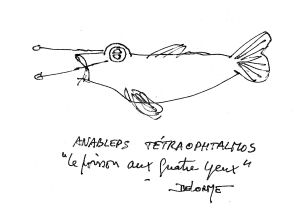 ANABLEPS TÉTRAOPHTALMOS
"le poisson aux quatre yeux"
- DELORME